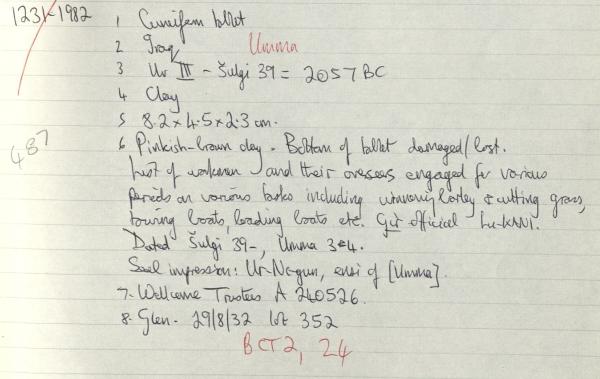 1231-1982
1 Cuneiform tablet
2 Iraq Umma
3 Ur III - Šulgi 39 = 2057 BC
4 Clay
5 8.2 x 4.5 x 2.3 cm.
6 Pinkish-brown clay. Bottom of tablet damaged/lost.
List of workmen and their overseers engaged for various
periods on various tasks including winnowing barley & cutting grass,
towing boats, loading boats etc. Gìr official Lu-KANI.
Dated Šulgi 39-, Umma 3+4.
Seal impression: Ur-Negun, ensi of [Umma].
487
7- Wellcome Trustees A 240526.
8- Glen. 29/8/32 lot 352
BCT2, 24